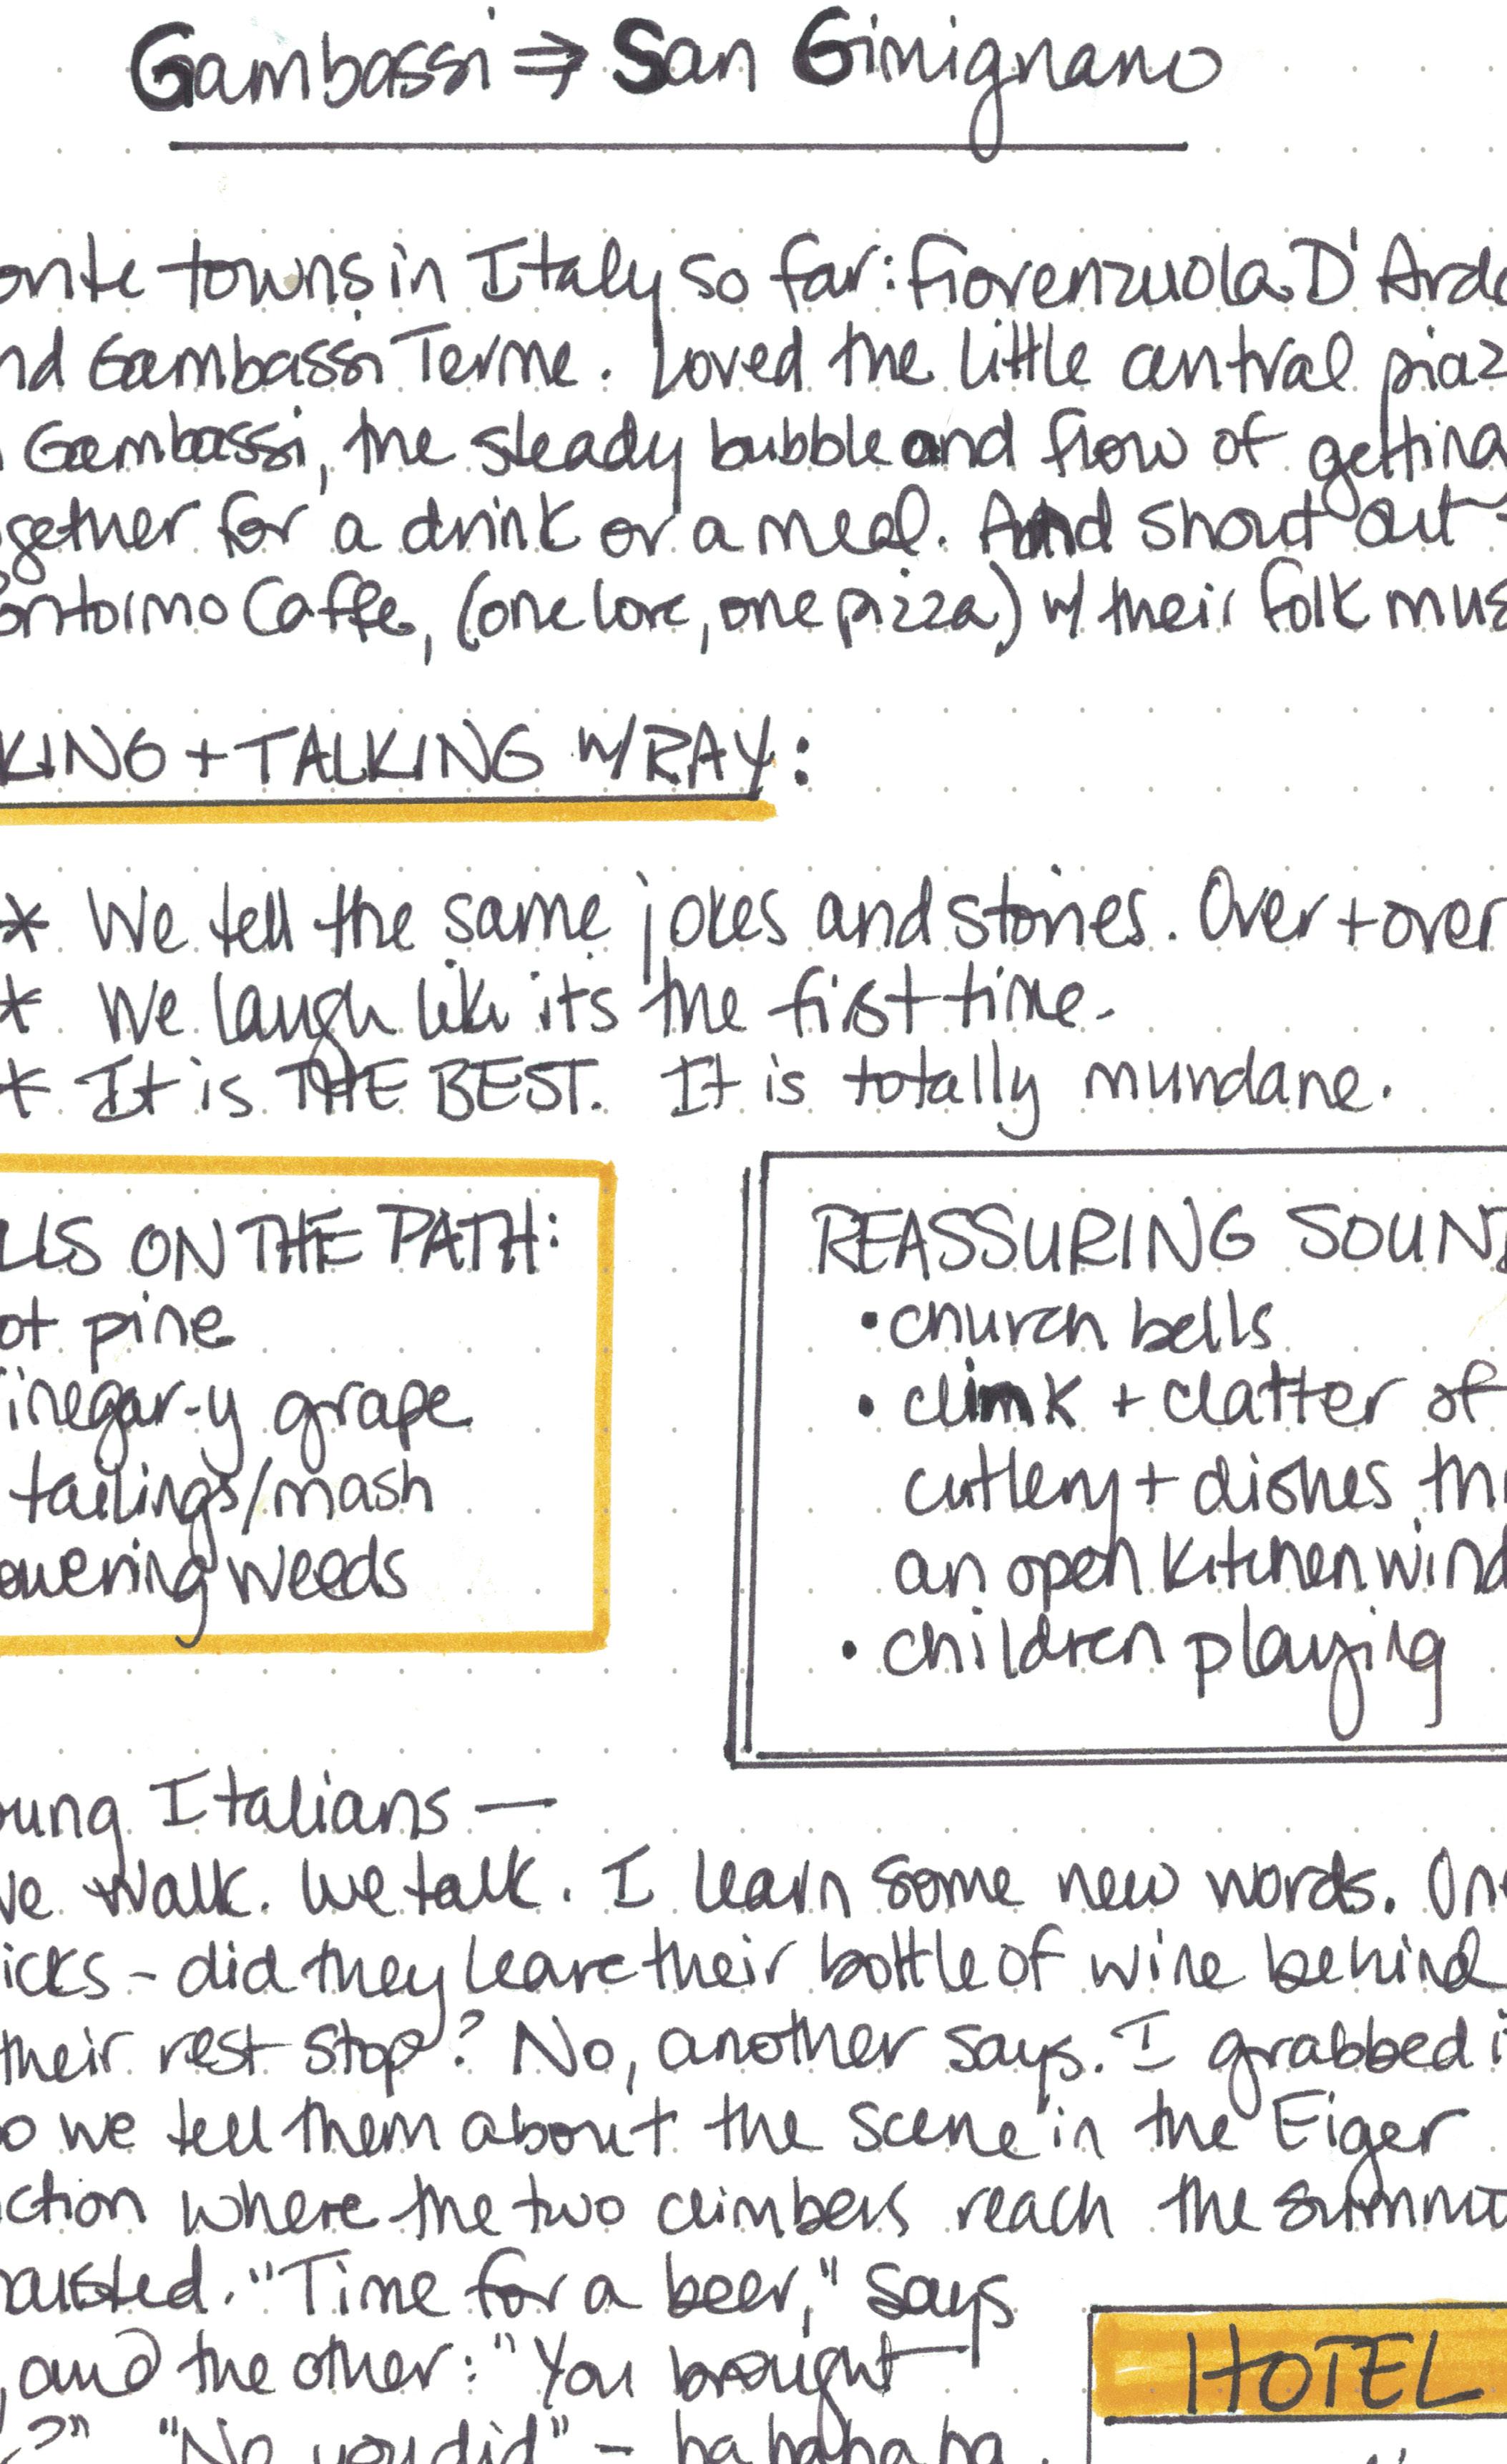 Gambassi ⇒ San Gimignano
onte towns in Italy so far: Fiorenzuola D'Arda
nd Gambassi Terme. Loved the little central piaz
Gambassi, the steady bubble and flow of getting
gether for a drink or a meal. And shout out
ontormo Caffe, (one love, one pizza) w/ their folk mus
KING + TALKING w/ RAY:
* We tell the same jokes and stories. Over + over
* We laugh like its the first time.
* It is THE BEST. It is totally mundane.
LLS ON THE PATH:
ot pine
inegar-y grape
tailings/mash
owering weeds
REASSURING SOUND
• church bells
• clink + clatter of
cutlery + dishes thr
an open kitchen wind
• children playing
oung Italians —
we walk. We talk. I learn some new words. One
icks - did they leave their bottle of wine behind
their rest stop? No, another says. I grabbed i
o we tell them about the scene in the Eiger
ction where the two climbers reach the summi
hausted. "Time for a beer," says
, and the other: "You brought
?" "No you did" - ha ha ha ha.
HOTEL